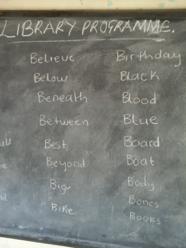 LIBRARY PROGRAMME.
Believe Birthday
Below Black
Beneath Blood
Between Blue
Best Board
Beyond Boat
Big Body
Bike Bones
Books